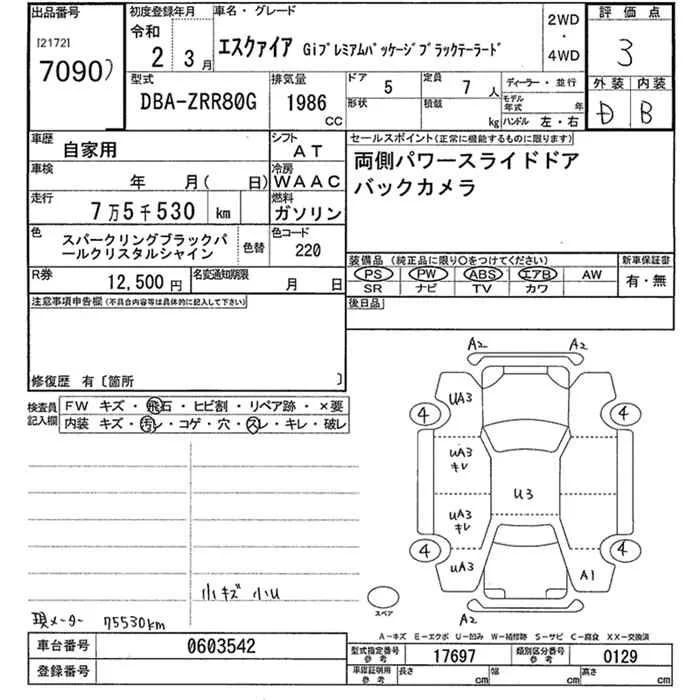 出品番号
[2172]
7090
初度登録年月
令和
2 3月
車名・グレード
エスクァイア Giプレミアムパッケージブラックテーラードﾞ
2WD
・
4WD
評価点
3
外装 内装
D B
型式
DBA-ZRR80G
排気量
1986
CC
ドア
5
定員
7 人
形状
積載
kg
ディーラー・並行
モデル年式 年
ハンドル 左・右
車歴
自家用
シフト
AT
車検
年 月( 日)
冷房
WAAC
走行
7万5千530 km
燃料
ガソリン
色
スパークリングブラックパ
ールクリスタルシャイン
色替
色コード
220
R券
12,500円
名変通知期限
月 日
セールスポイント(正常に機能するものに限ります)
両側パワースライドドア
バックカメラ
装備品 (純正品に限り○をつけてください)
PS PW ABS エアB AW
SR ナビ TV カワ
新車保証書
有・無
後日品
注意事項申告欄(不具合内容等は具体的に記入して下さい)
修復歴 有〔箇所 〕
検査員
記入欄
FW キズ・飛石・ヒビ割・リペア跡・×要
内装 キズ・汚レ・コゲ・穴・スレ・キレ・破レ
小キズ 小U
現メーター 75530km
A2 A2
UA3
4 4
UA3
キレ
U3
UA3
キレ
4 4
UA3
A1
A2
スペア
A-キズ E-エクボ U-凹み W-補修跡 S-サビ C-腐食 XX-交換済
車台番号
0603542
登録番号
型式指定番号
参考
17697
類別区分番号
参考
0129
車庫証明用
参考
長さ cm
幅 cm
高さ cm